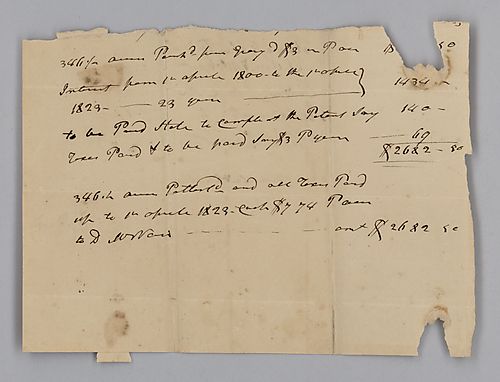 346½ acres Purch'd from Gray'd $3 pr acre 50
Interest from 1st aprile 1800 to the 1st aprile
1823 — 23 years 1434 —
to be Paid State to Compleat the Patent Say 140 —
Taxes Paid & to be paid Say $3 Pr year — 69
$2682 — 50
346½ acres Patented and all Taxes Paid
up to 1st aprile 1823 — Cash $7 74 Pr acre
to D McNair — amt $2682 50